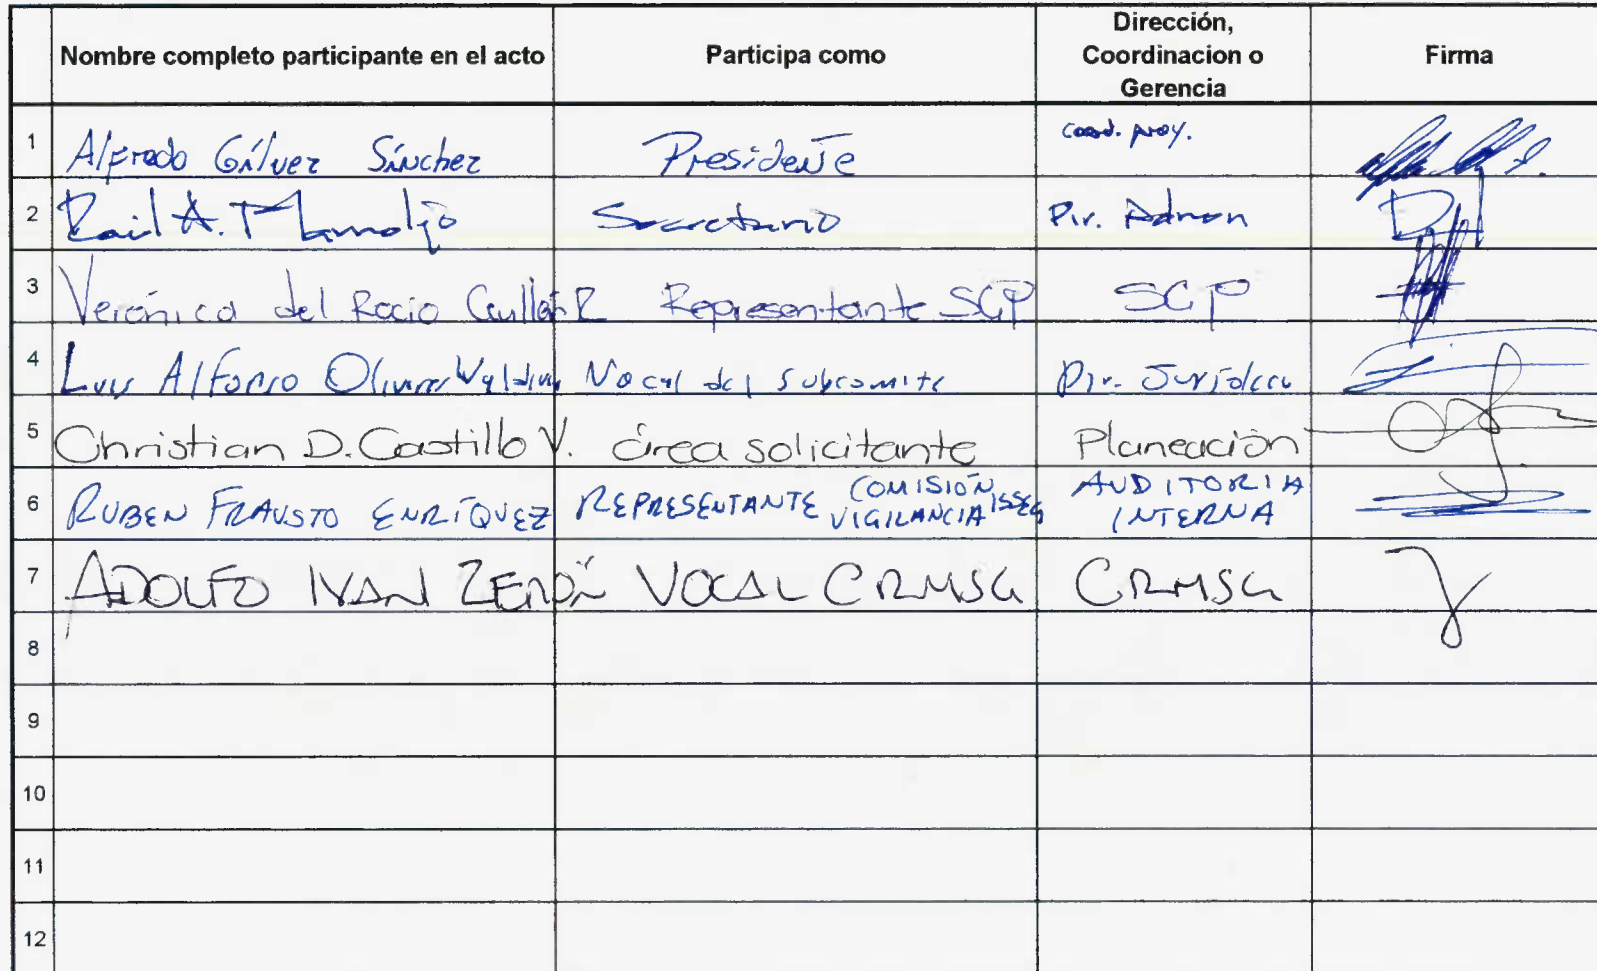 Nombre completo participante en el acto
Participa como
Dirección,
Coordinacion o
Gerencia
Firma
1 Alfredo Gálvez Sánchez Presidente Coord. proy.
2 Raúl A. Secretario Dir. Admon
3 Verónica del Rocio R Representante SGP SGP
4 Luis Alfonso Vocal del Subcomite Dir. Jurídica
5 Christian D. Castillo V. área solicitante Planeación
6 RUBEN FRAUSTO ENRÍQUEZ REPRESENTANTE COMISIÓN VIGILANCIA ISSEG AUDITORIA INTERNA
7 ADOLFO IVAN ZERÓN VOCAL CRMSG CRMSG
8
9
10
11
12